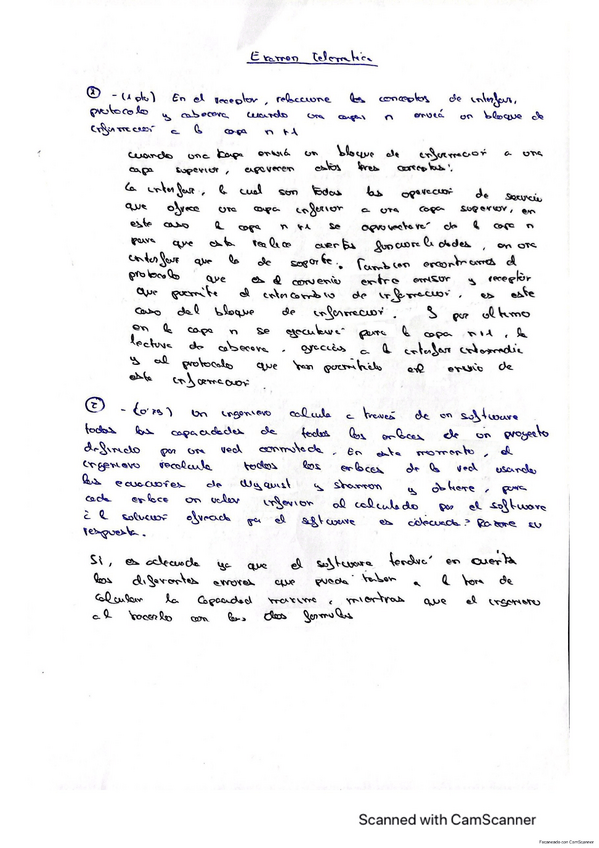 Examen Telematica
① - (1 pto) En el receptor, relacione los conceptos de interfaz,
protocolo y cabecera cuando una capa n envía un bloque de
información a la capa n+1
cuando una capa envia un bloque de información a una
capa superior, aparecen estos tres conceptos:
la interfaz, la cual son todas las operacion de servicio
que ofrece una capa inferior a una capa superior, en
este caso la capa n+1 se aprovechará de la capa n
para que esta realice ciertas funcionalidades, en una
interfaz que la de soporte. Tambien encontramos el
protocolo que es el convenio entre emisor y receptor
que permite el intercambio de información, es este
caso del bloque de información. Y por ultimo
en la capa n se ejecutará para la capa n+1, la
lectura de cabecera, gracias a la interfaz intermedia
y al protocolo que han permitido el envio de
esta información.
② - (0'75) Un ingeniero calcula a través de un software
todas las capacidades de todos los enlaces de un proyecto
definido por una red conmutada. En este momento, el
ingeniero recalcula todos los enlaces de la red usando
las ecuaciones de Nyquist y Shannon y obtiene, para
cada enlace un valor inferior al calculado por el software
¿ la solucion ofrecida por el software es adecuada? Razone su
respuesta.
Si, es adecuada ya que el software tendrá en cuenta
los diferentes errores que pueda haber a la hora de
calcular la capacidad maxima, mientras que el ingeniero
al hacerlo con las dos formulas
Scanned with CamScanner
Escaneado con CamScanner